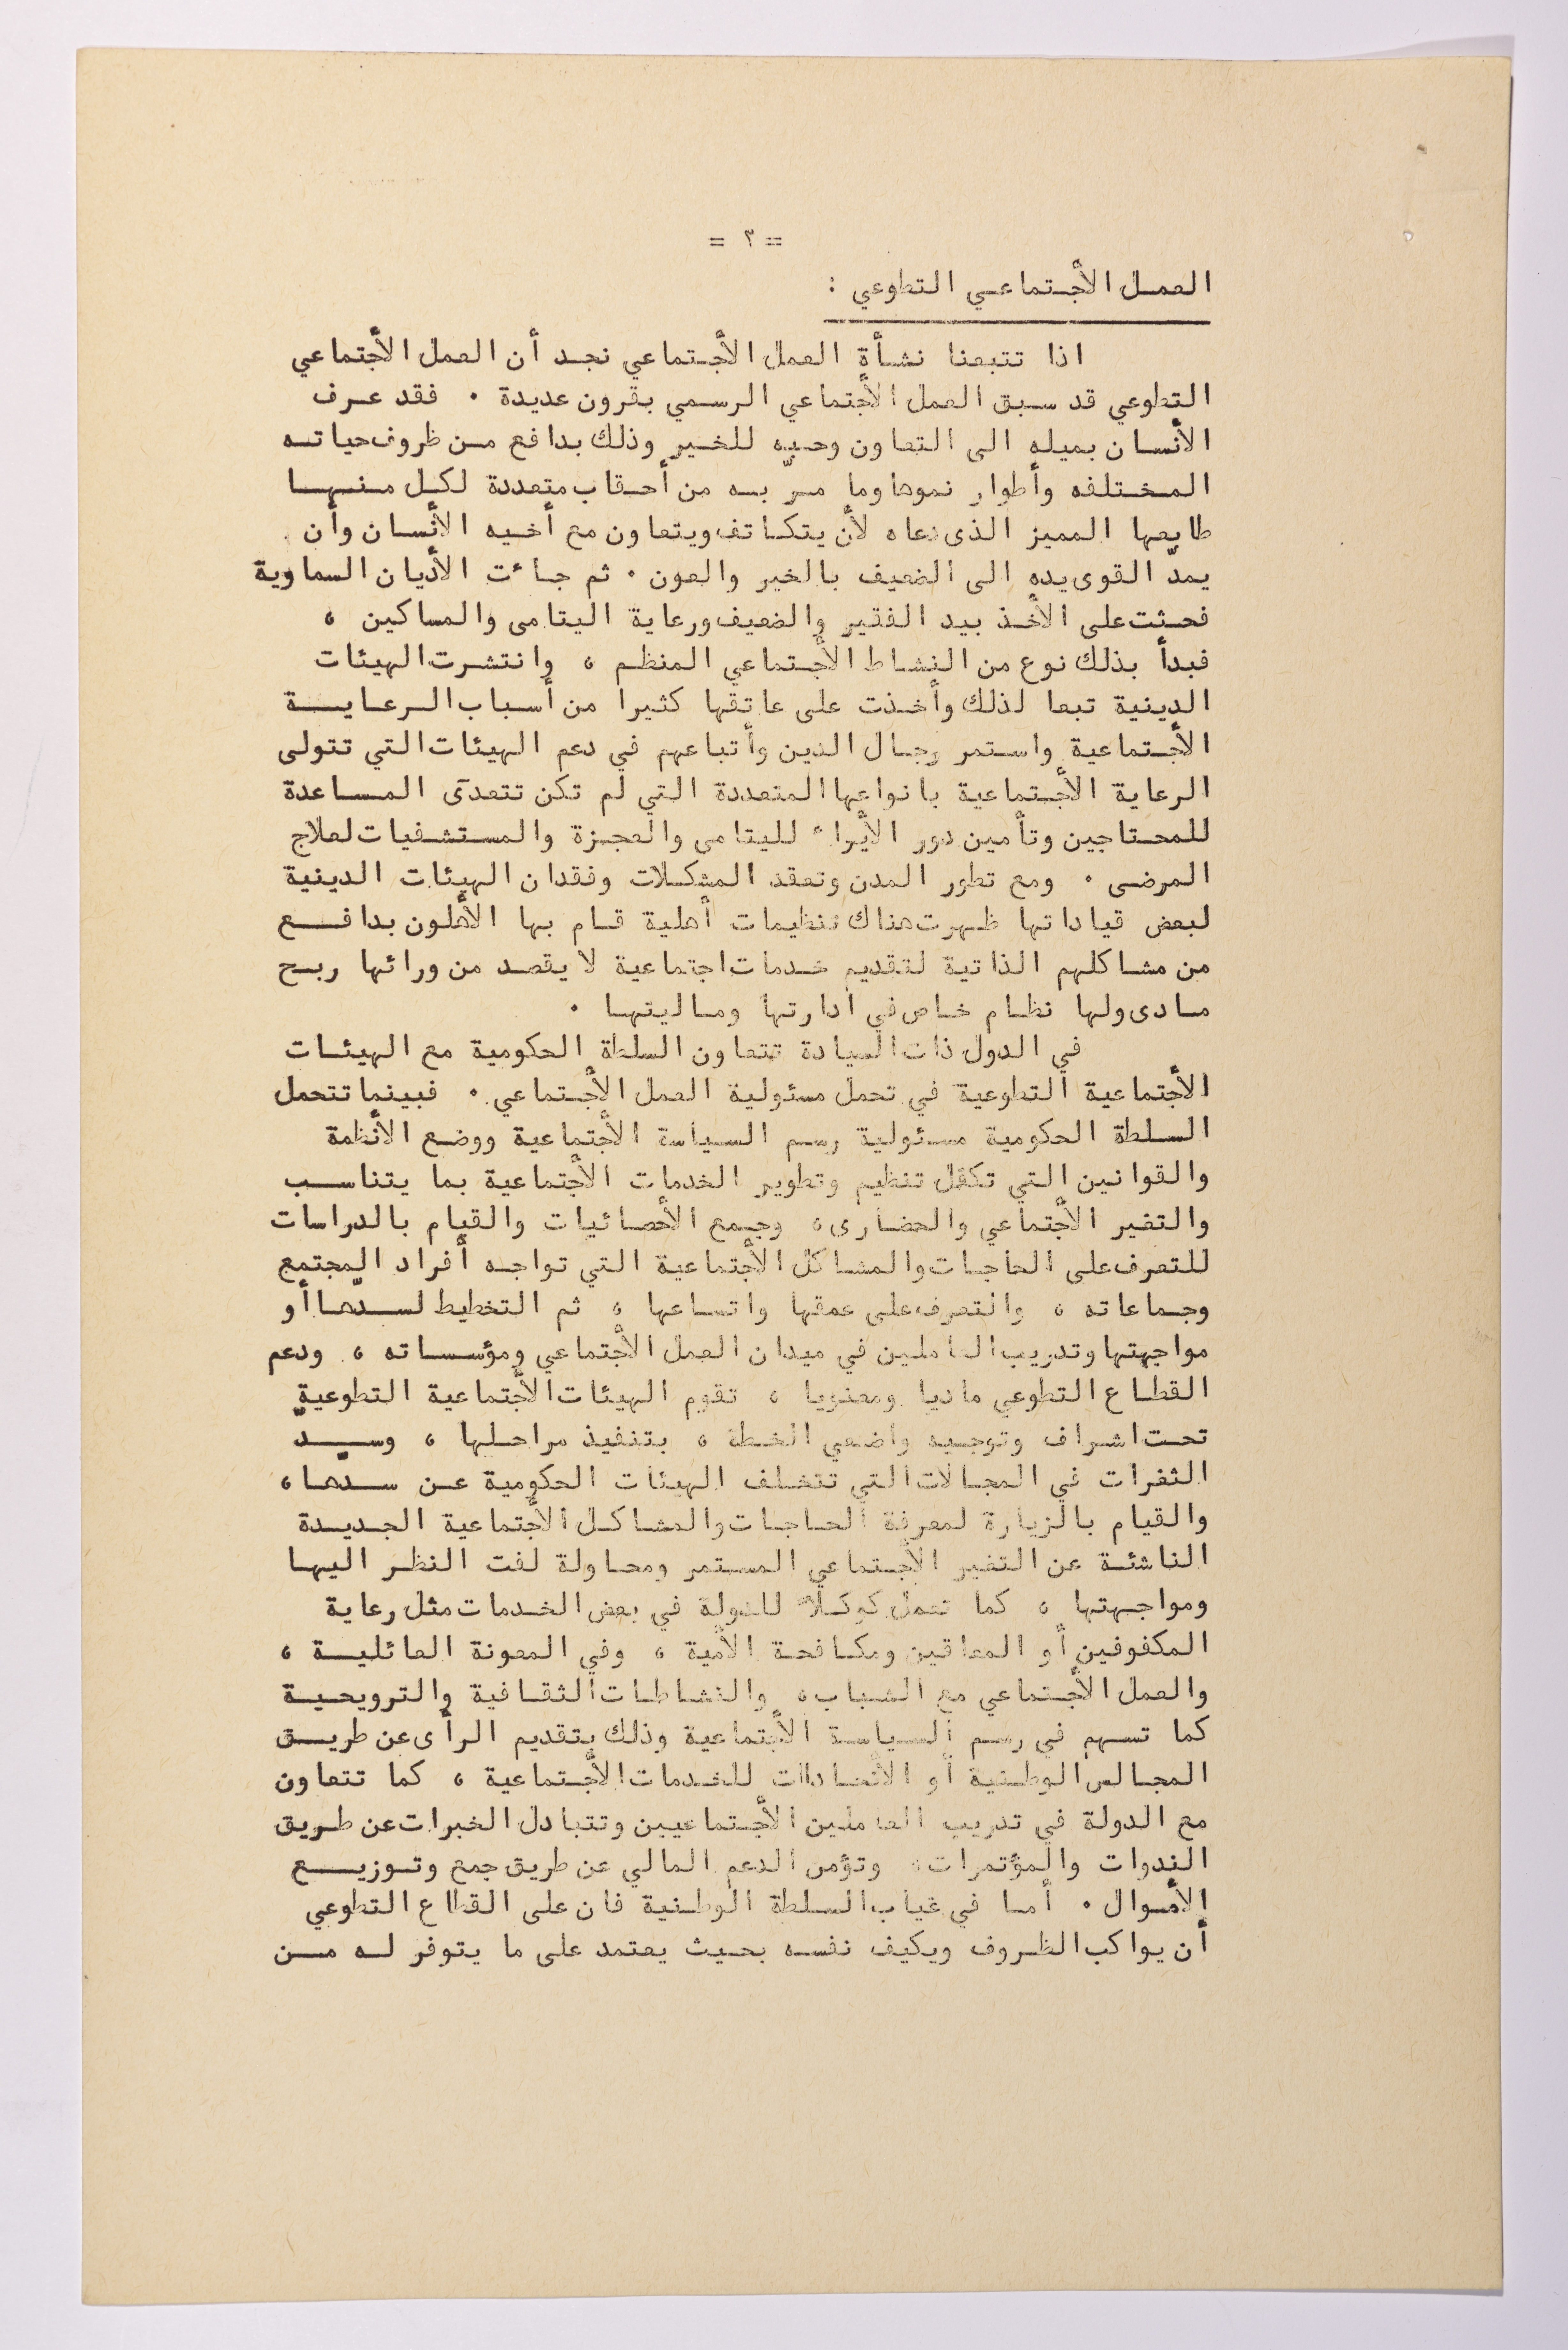 = ٢ =
العمل الأجتماعي التطوعي :
اذا تتبعنا نشأة العمل الأجتماعي نجد أن العمل الأجتماعي
التطوعي قد سبق العمل الأجتماعي الرسمي بقرون عديدة ٠ فقد عرف
الأنسان بميله الى التعاون وحبه للخير وذلك بدافع من ظروف حياته
المختلفه وأطوار نموها وما مرّ به من أحقاب متعددة لكل منها
طابعها المميز الذى دعاه لأن يتكاتف ويتعاون مع أخيه الأنسان وأن
يمدّ القوى يده الى الضعيف بالخير والعون ٠ ثم جاءت الأديان السماوية
فحثت على الأخذ بيد الفقير والضعيف ورعاية اليتامى والمساكين ،
فبدأ بذلك نوع من النشاط الأجتماعي المنظم ، وانتشرت الهيئات
الدينية تبعا لذلك وأخذت على عاتقها كثيرا من أسباب الرعاية
الأجتماعية واستمر رجال الدين وأتباعهم في دعم الهيئات التي تتولى
الرعاية الأجتماعية بانواعها المتعددة التي لم تكن تتعدى المساعدة
للمحتاجين وتأمين دور الأيواء لليتامى والعجزة والمستشفيات لعلاج
المرضى ٠ ومع تطور المدن وتعقد المشكلات وفقدان الهيئات الدينية
لبعض قياداتها ظهرت هناك تنظيمات أهلية قام بها الأهلون بدافع
من مشاكلهم الذاتية لتقديم خدمات اجتماعية لا يقصد من ورائها ربح
مادى ولها نظام خاص في ادارتها وماليتها ٠
في الدول ذات السيادة تتعاون السلطة الحكومية مع الهيئات
الأجتماعية التطوعية في تحمل مسئولية العمل الأجتماعي ٠ فبينما تتحمل
السلطة الحكومية مسئولية رسم السياسة الأجتماعية ووضع الأنظمة
والقوانين التي تكفل تنظيم وتطوير الخدمات الأجتماعية بما يتناسب
والتغير الأجتماعي والحضارى، وجمع الأحصائيات والقيام بالدراسات
للتعرف على الحاجات والمشاكل الأجتماعية التي تواجه أفراد المجتمع
وجماعاته ، والتعرف على عمقها واتساعها ، ثم التخطيط لسدّها أو
مواجهتها وتدريب العاملين في ميدان العمل الأجتماعي ومؤسساته ، ودعم
القطاع التطوعي ماديا ومعنويا ، تقوم الهيئات الأجتماعية التطوعية
تحت اشراف وتوجيه واضعي الخطة ، بتنفيذ مراحلها ، وسدّ
الثغرات في المجالات التي تتخلف الهيئات الحكومية عن سدها،
والقيام بالزيارة لمعرفة الحاجات والمشاكل الأجتماعية الجديدة
الناشئة عن التغير الأجتماعي المستمر ومحاولة لفت النظر اليها
ومواجهتها ، كما تعمل كوكلاء للدولة في بعض الخدمات مثل رعاية
المكفوفين أو المعاقين ومكافحة الأمية ، وفي المعونة العائلية ،
والعمل الأجتماعي مع الشباب، والنشاطات الثقافية والترويحية
كما تسهم في رسم السياسة الأجتماعية وذلك بتقديم الرأى عن طريق
المجالس الوطنية أو الأتحادات للخدمات الأجتماعية ، كما تتعاون
مع الدولة في تدريب العاملين الأجتماعيين وتتبادل الخبرات عن طريق
الندوات والمؤتمرات، وتؤمن الدعم المالي عن طريق جمع وتوزيع
الأموال ٠ أما في غياب السلطة الوطنية فان على القطاع التطوعي
أن يواكب الظروف ويكيف نفسه بحيث يعتمد على ما يتوفر له من